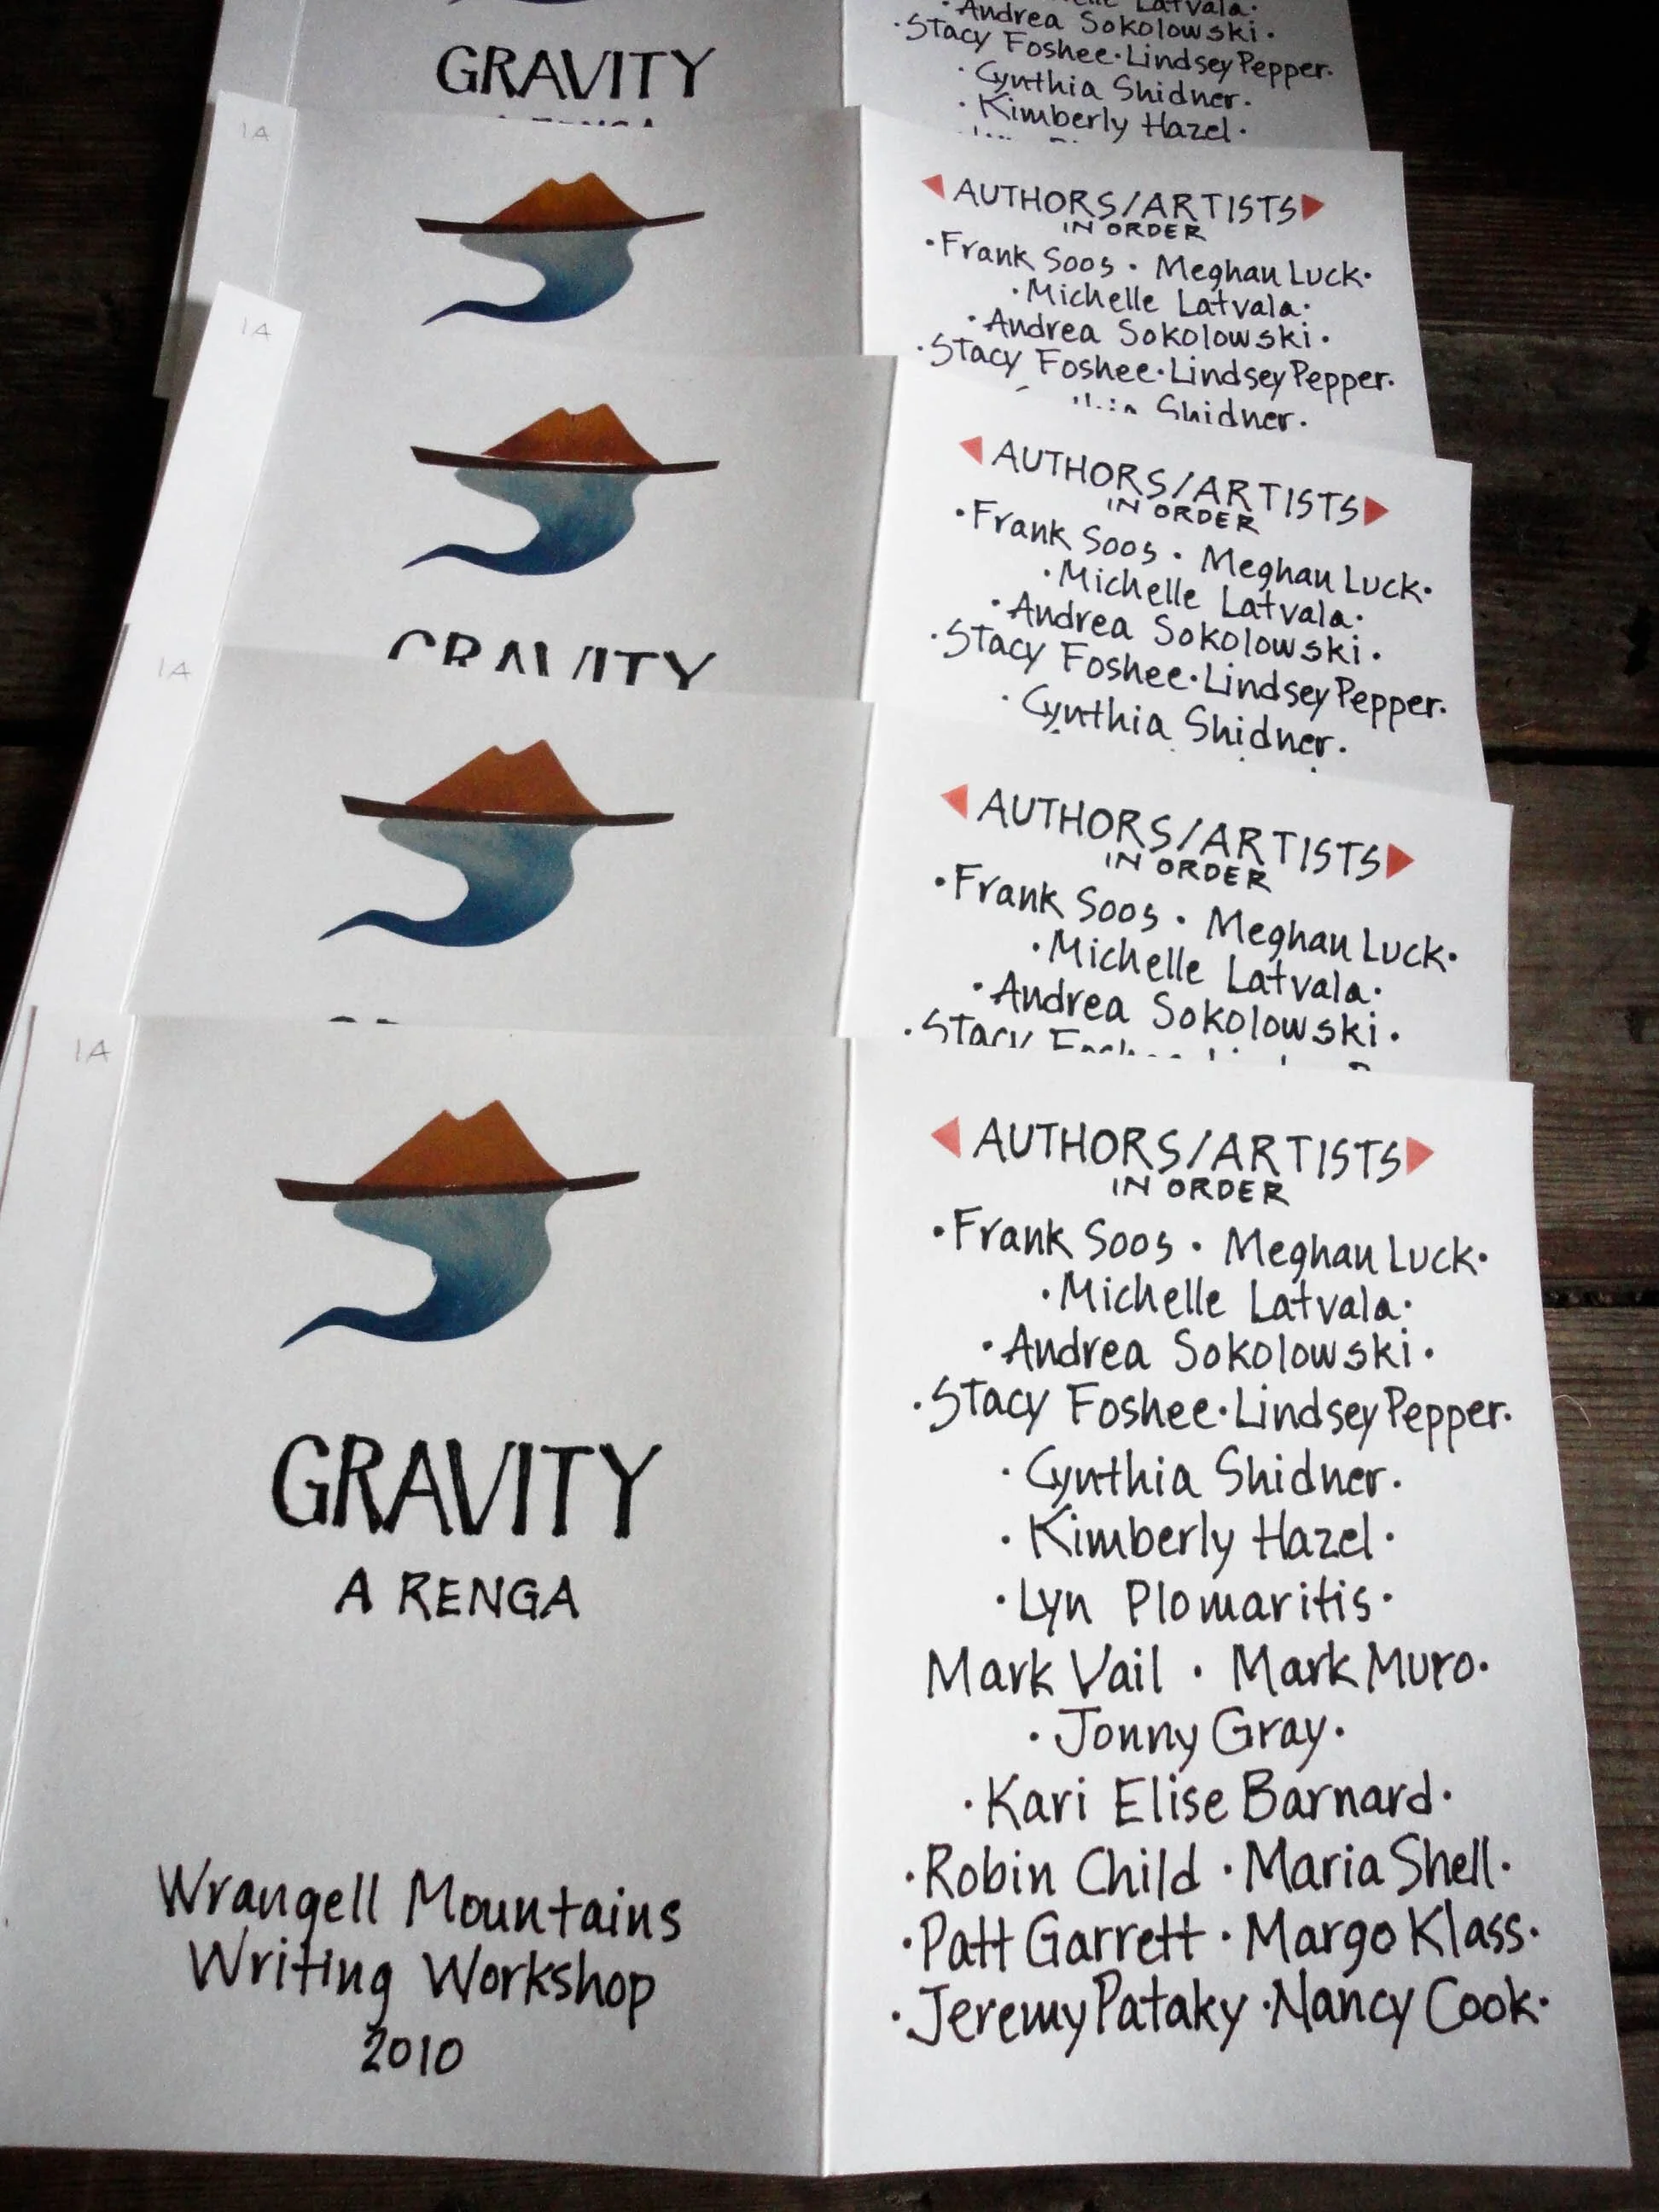 GRAVITY
Latvala·
·Andrea Sokolowski·
·Stacy Foshee·Lindsey Pepper·
·Cynthia Shidner·
·Kimberly Hazel·
1A
AUTHORS/ARTISTS
IN ORDER
·Frank Soos · Meghan Luck·
·Michelle Latvala·
·Andrea Sokolowski·
·Stacy Foshee·Lindsey Pepper·
Shidner·
1A
GRAVITY
AUTHORS/ARTISTS
IN ORDER
·Frank Soos · Meghan Luck·
·Michelle Latvala·
·Andrea Sokolowski·
·Stacy Foshee·Lindsey Pepper·
·Cynthia Shidner·
1A
AUTHORS/ARTISTS
IN ORDER
·Frank Soos · Meghan Luck·
·Michelle Latvala·
·Andrea Sokolowski·
·Stacy
1A
GRAVITY
A RENGA
Wrangell Mountains
Writing Workshop
2010
AUTHORS/ARTISTS
IN ORDER
·Frank Soos · Meghan Luck·
·Michelle Latvala·
·Andrea Sokolowski·
·Stacy Foshee·Lindsey Pepper·
·Cynthia Shidner·
·Kimberly Hazel·
·Lyn Plomaritis·
Mark Vail · Mark Muro·
·Jonny Gray·
·Kari Elise Barnard·
·Robin Child ·Maria Shell·
·Patt Garrett · Margo Klass·
·Jeremy Pataky ·Nancy Cook·